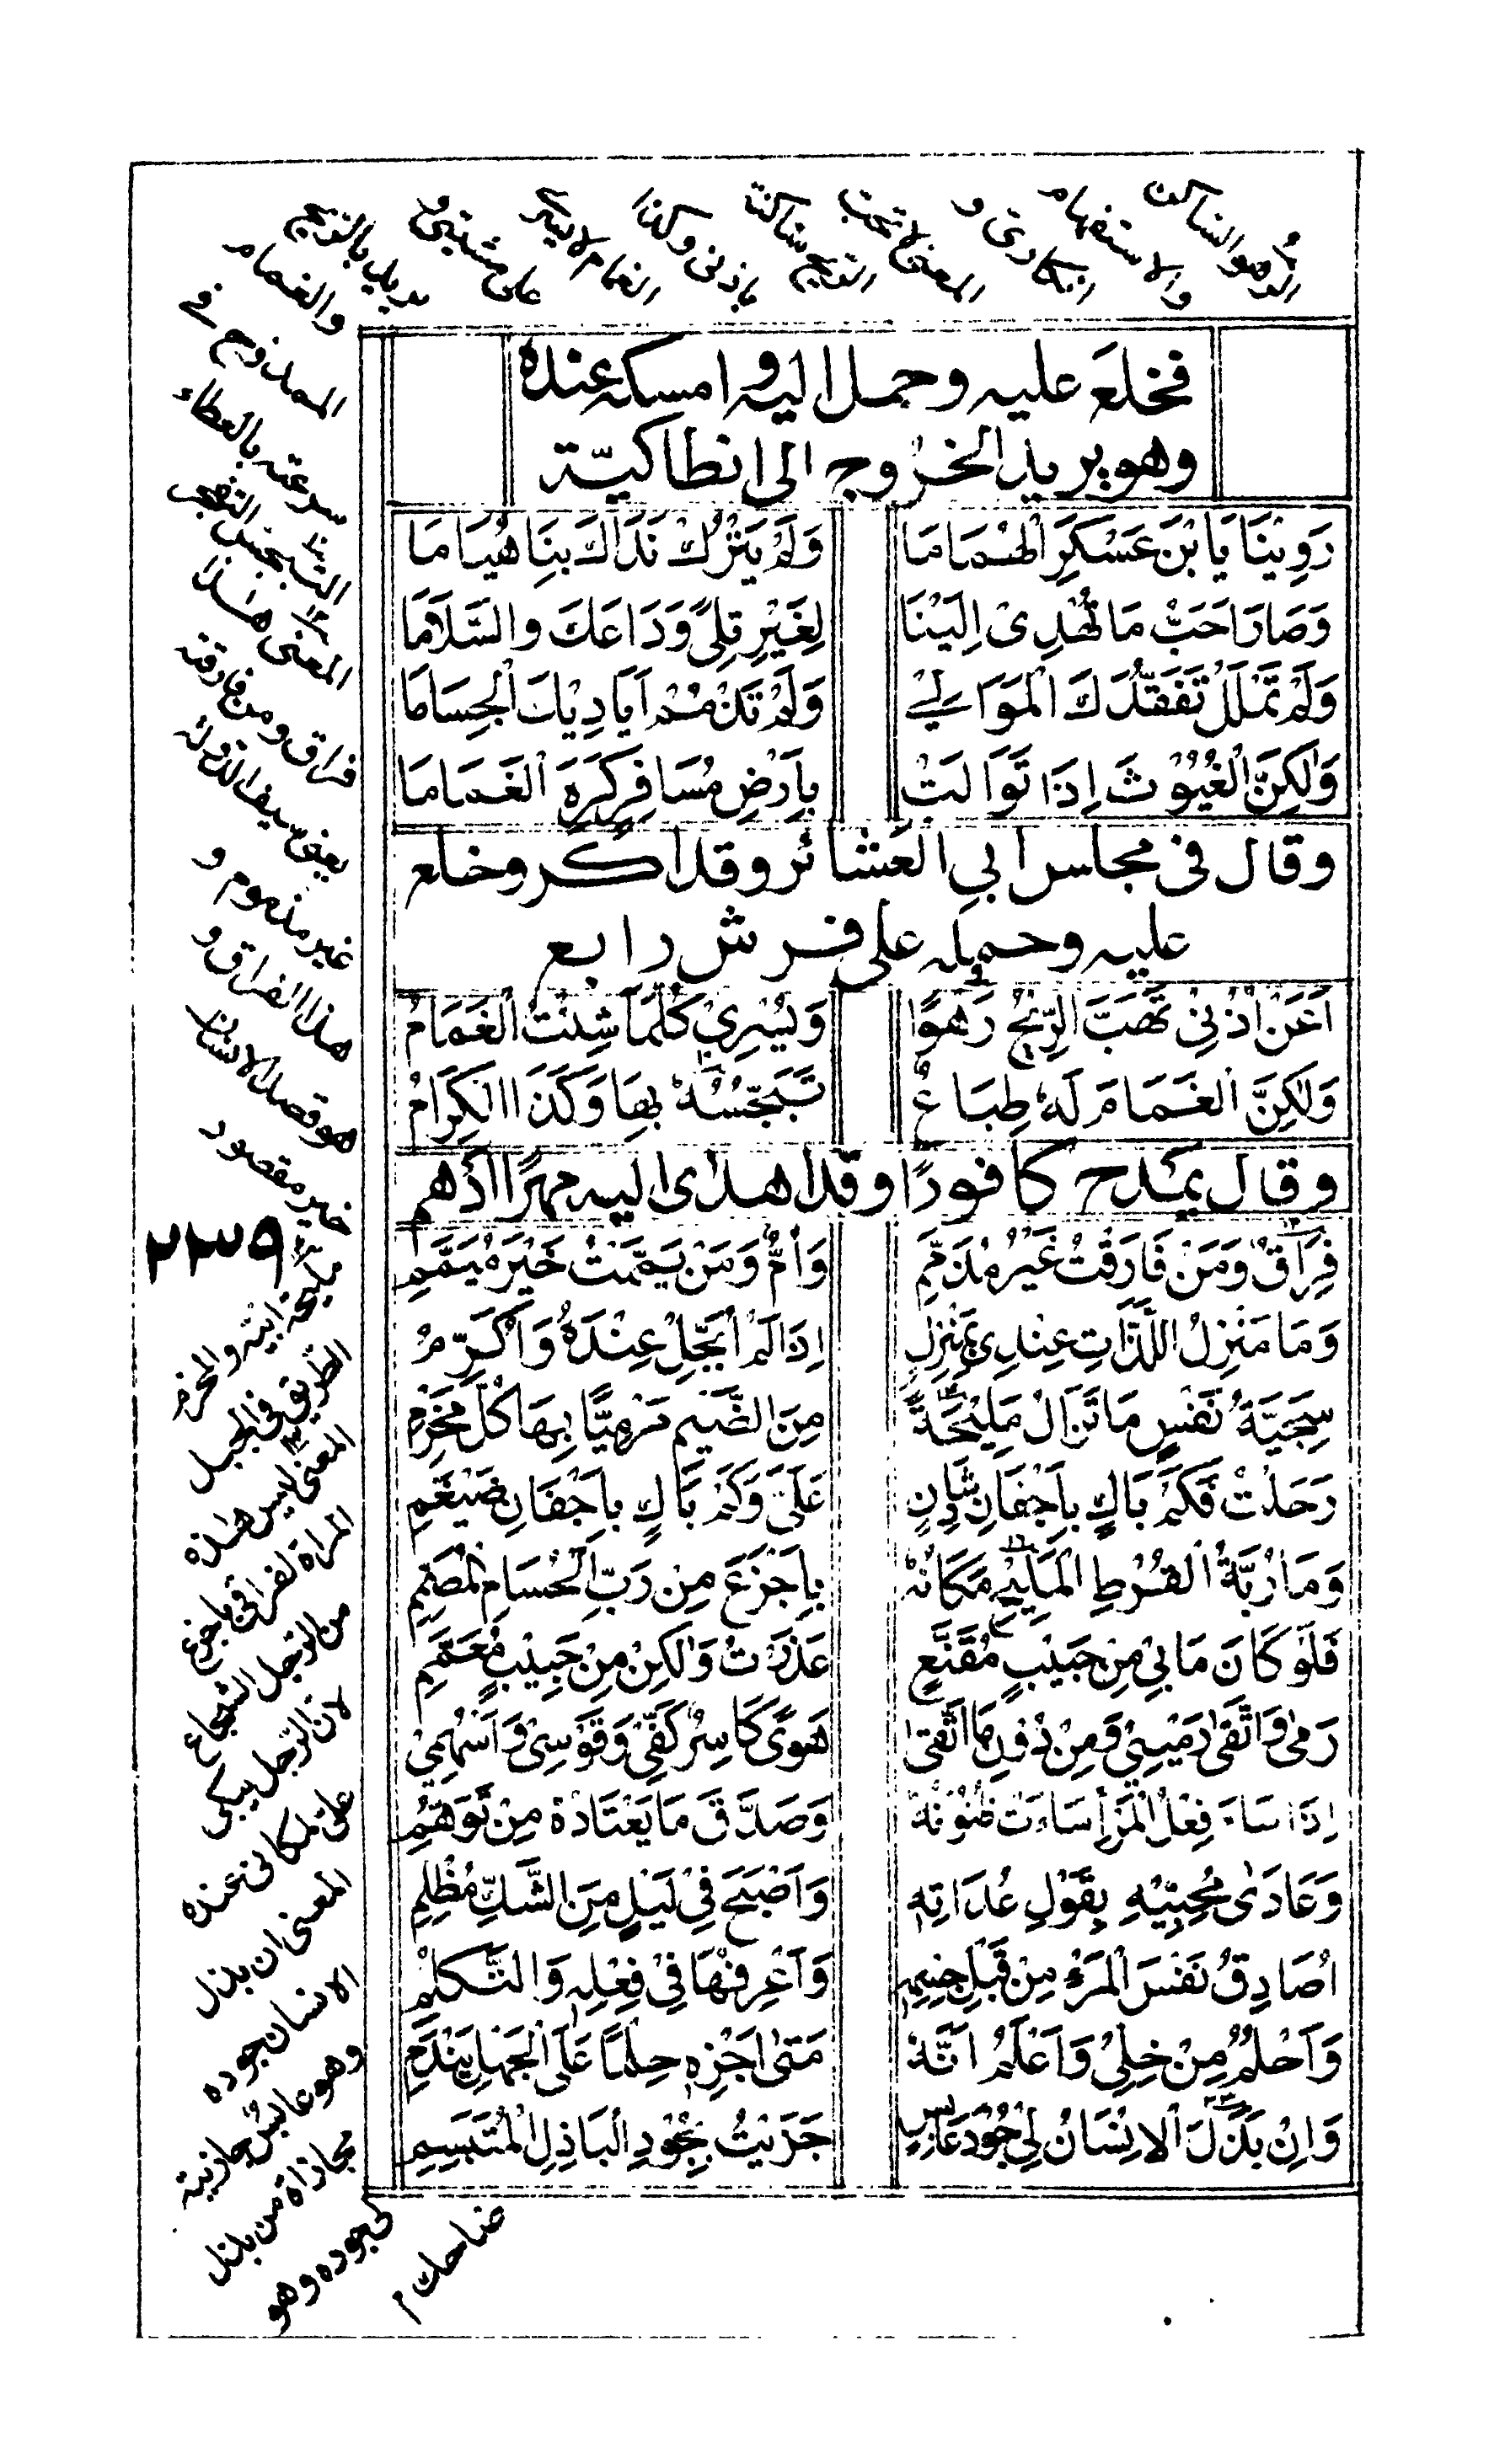 الرهو الساكن
والاستفهام
انكاري و
المعنى لا تهب
الريح ساكنة
باذني ولا
الغمام لا يسير
على مشيتي
والغمام
الممدوح في
سرعته بالعطاء
التبجس التفجر
المعنى هذا
فراق ومن فارقته
يعني سيف الدولة
غير مذموم و
هذا الفراق و
هو قصد الانسان
خير مقصود
فخلع عليه وحمل اليه وامسكه عنده
وهو يريد الخروج الى انطاكيّة
رَوِيْنَا يَا بْنَ عَسْكَرِ الْهُمَامَا وَلَمْ يَتْرُكْ نَدَاكَ بِنَا هُيَامَا
وَصَارَ اَحَبُّ مَا تُهْدِىْ اِلَيْنَا لِغَيْرِ قِلىً وَدَاعَكَ وَالسَّلَامَا
وَلَمْ تَمْلَلْ تَفَقُّدَكَ الْمَوَالِيْ وَلَمْ تَذْمُمْ اَيَادِيْكَ الْجِسَامَا
وَلٰكِنَّ الْغُيُوْثَ اِذَا تَوَالَتْ بِاَرْضِ مُسَافِرٍ كَرِهَ الْغَمَامَا
وقال فى مجلس ابي العشائر وقد اكثر وخلع
عليه وحمله على فرش رابع
اَعَنْ اِذْنِيْ تَهُبُّ الرِّيْحُ رَهْوًا وَيُسْرِيْ كُلَّمَا شِئْتُ الْغَمَامُ
وَلٰكِنَّ الْغَمَامَ لَهٗ طِبَاعٌ تَبَجُّسُهٗ بِهَا وَكَذَا الْكِرَامُ
وقال يمدح كافورًا وقد اهدى اليه مهرًا ادهم
فِرَاقٌ وَمَنْ فَارَقْتُ غَيْرُ مُذَمَّمِ وَاَمٌّ وَمَنْ يَمَّمْتُ خَيْرُ مُيَمَّمِ
وَمَا مَنْزِلُ اللَّذَّاتِ عِنْدِىْ بِمَنْزِلِ اِذَا لَمْ اُبَجَّلْ عِنْدَهٗ وَاُكَرَّمُ
سَجِيَّةُ نَفْسٍ مَا تَزَالُ مَلِيْحَةً مِنَ الضَّيْمِ مَرْمِيًّا بِهَا كُلُّ مَخْرِمِ
رَحَلْتُ فَكَمْ بَاكٍ بِاَجْفَانِ شَادِنٍ عَلَيَّ وَكَمْ بَاكٍ بِاَجْفَانِ ضَيْغَمِ
وَمَا رَبَّةُ الْقُرْطِ الْمَلِيْحِ مَكَانُهٗ بِاَجْزَعَ مِنْ رَبِّ الْحُسَامِ الْمُصَمِّمِ
فَلَوْ كَانَ مَا بِيْ مِنْ حَبِيْبٍ مُقَنَّعٍ عَذَرْتُ وَلٰكِنْ مِنْ حَبِيْبٍ مُعَمَّمِ
رَمٰى وَاتَّقٰى رَمْيِيْ وَمِنْ دُوْنِ مَا اتَّقٰى هَوًى كَاسِرٌ كَفِّيْ وَقَوْسِيْ وَاَسْهُمِيْ
اِذَا سَاءَ فِعْلُ الْمَرْءِ سَاءَتْ ظُنُوْنُهٗ وَصَدَّقَ مَا يَعْتَادُهٗ مِنْ تَوَهُّمِ
وَعَادٰى مُحِبِّيْهِ بِقَوْلِ عُدَاتِهٖ وَاَصْبَحَ فِيْ لَيْلٍ مِنَ الشَّكِّ مُظْلِمِ
اُصَادِقُ نَفْسَ الْمَرْءِ مِنْ قَبْلِ جِسْمِهٖ وَاَعْرِفُهَا فِيْ فِعْلِهٖ وَالتَّكَلُّمِ
وَاَحْلُمُ مِنْ خِلِّيْ وَاَعْلَمُ اَنَّهٗ مَتٰى اَجْزِهٖ حِلْمًا عَلَى الْجَهْلِ يَنْدَمِ
وَاِنْ بَذَلَ الْاِنْسَانُ لِيْ جُوْدَ عَابِسٍ جَزَيْتُ بِجُوْدِ الْبَاذِلِ الْمُتَبَسِّمِ
٢٣٩
مليحة ابيّة والمخرم
الطريق فى الجبل
المعنى ليس هذه
المراة لفراقي باجزع
من الرجل الشجاع
لان الرجل يبكي
على مكاني عنده
المعنى ان بذل
الانسان جوده
وهو عابس جازيته
مجازاة من بذل
لي جوده وهو
ضاحك